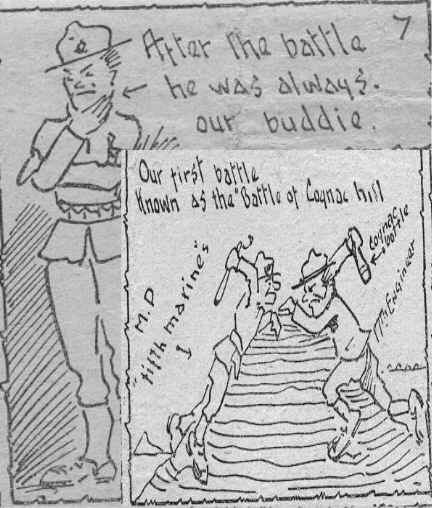 7
After the battle
he was always.
our buddie.
Our first battle
Known as the "Battle of Cognac hill
M.P
"fifth marine's"
I
Cognac
bottle
7th Engineer